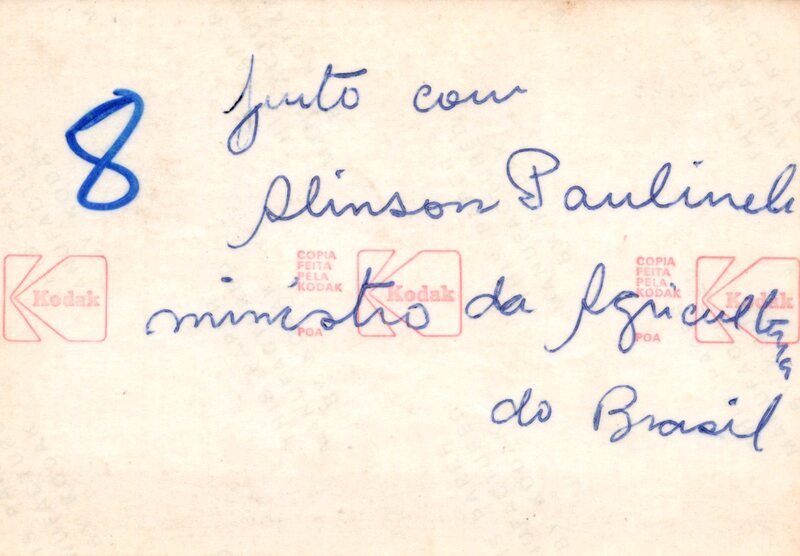 8
junto com
Alinson Paulineli
ministro da Agricultura
do Brasil
Kodak
COPIA
FEITA
PELA
KODAK
POA
Kodak
COPIA
FEITA
PELA
KODAK
POA
Kodak